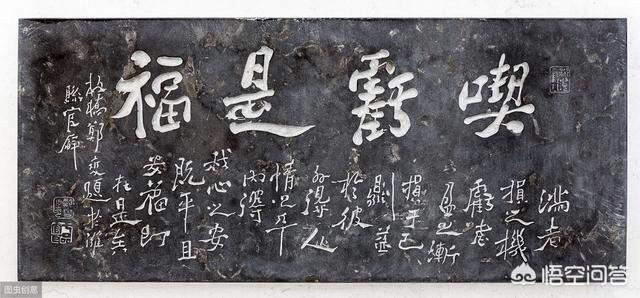 喫虧是福
滿者
損之機
虧者
盈之漸
損于己
則益
於彼
外得人
情之平
内得
我心之安
既平且
安福即
在是矣
板橋鄭燮題於濰
縣官廨
图虫创意
悟空问答